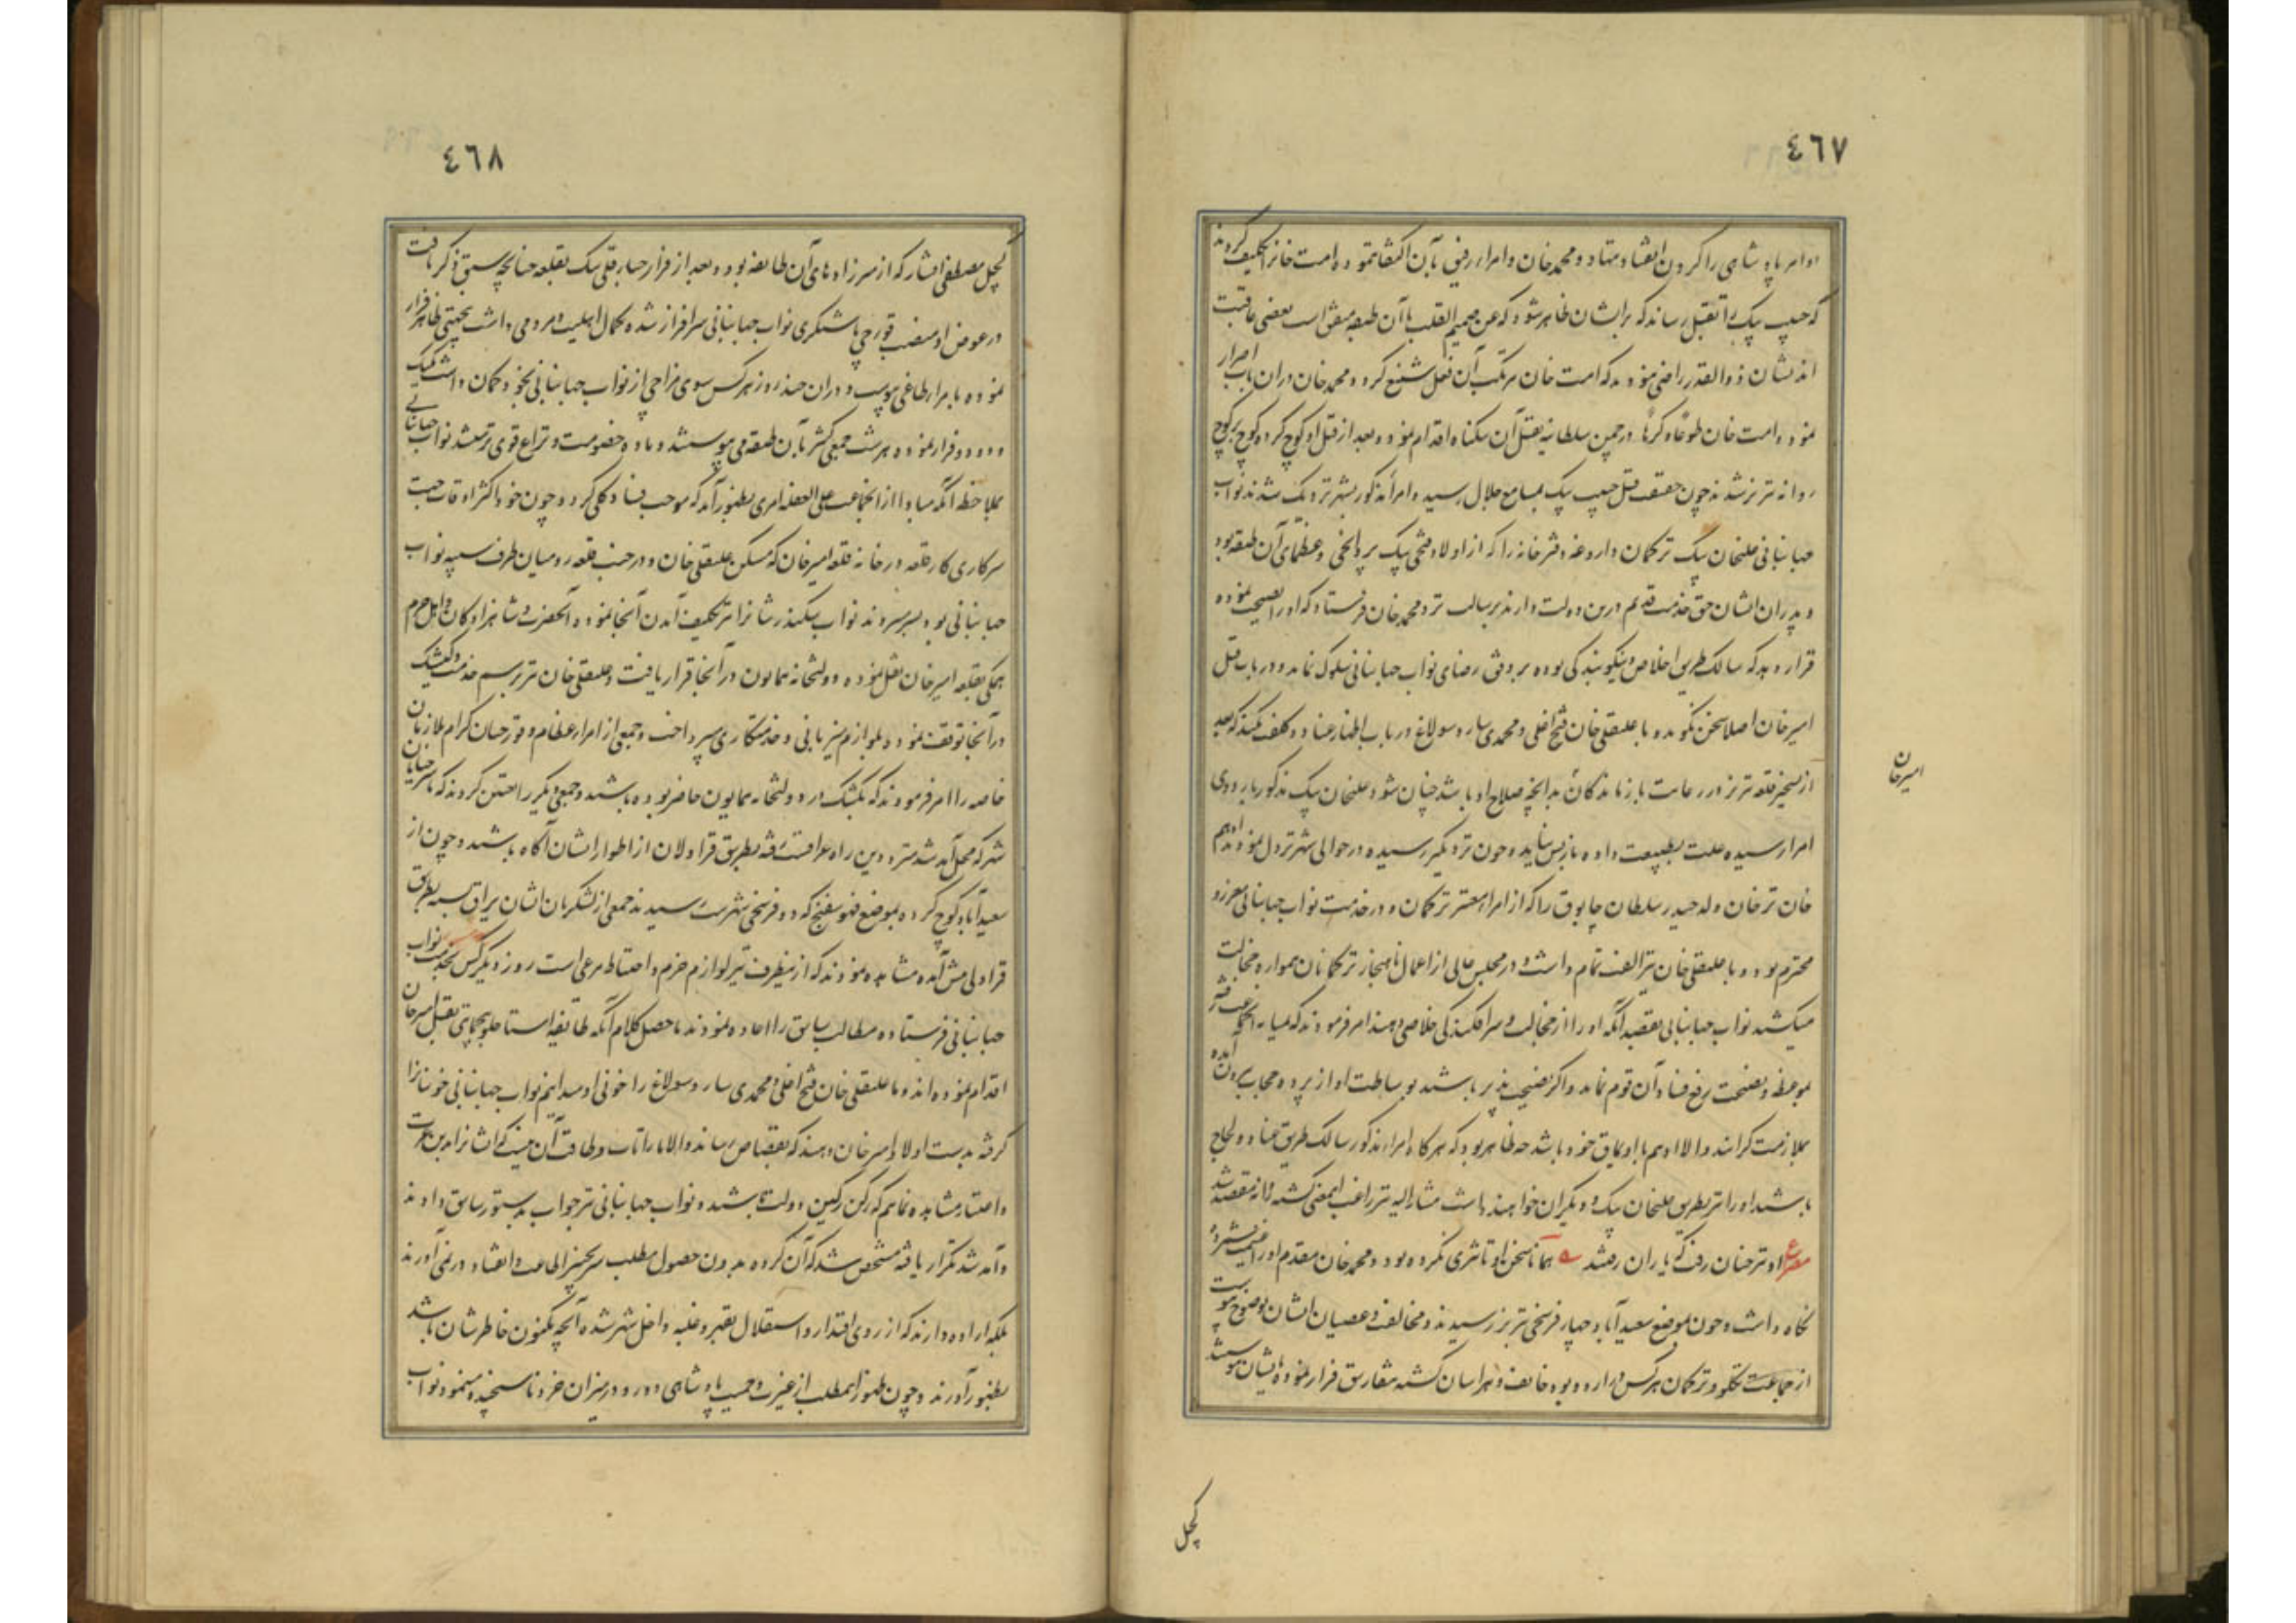 ٤٦٧
اوامر پادشاهی را گردن انقیاد ننهاد و محمد خان و امراء رفیق بآن اکتفا ننموده امت خانرا تکلیف کردند
که حبیب بیک را بقتل رساند که بر ایشان ظاهر شود که عن صمیم القلب با آن طبقه متفق است بعضی عاقبت
اندیشان ذوالقدر راضی نبودند که امت خان مرتکب آن فعل شنیع گردد محمد خان در آن باب اصرار
نمود و امت خان طوعا و کرها در چمن سلطانیه بقتل آن بیگناه اقدام نمود و بعد از قتل او کوچ کرده کوچ بر کوچ
روانه تبریز شدند چون حقیقت قتل حبیب بیک بمسامع جلال رسید و امراء مذکور بیشتر نزدیک شدند نواب
جهانبانی علیخان بیگ ترکمان داروغه دفترخانه را که از اولاد بیک و عظمای آن طبقه بود
و پدران ایشان حق خدمت قدیم درین دولت دارند برسالت نزد محمد خان فرستاد که او را نصیحت نموده
قرار دهد که سالک طریق اخلاص و نیکو بندگی بوده بر وفق رضای نواب جهانبانی سلوک نماید و در باب قتل
امیر خان اصلا سخن نگوید و با علیقلی خان فتح اغلی و محمدی ساروسولاغ در باب اظهار عناد و کلفت نکند که بعد
از تسخیر قلعه تبریز در رعایت بازماندگان بدانچه صلاح او باشد چنان شود علیخان بیک مذکور باردوی
امرا رسیده علت بطبیعت داده باز پس نیامد و چون نزدیکتر رسیده در حوالی شهر نزول نمودند ادهم
خان ترخان ولد حیدر سلطان چابوق را که از امراء معتبر ترکمان و در خدمت نواب جهانبانی معزز و
محترم بود و با علیقلی خان نیز الفت تمام داشت و در مجلس عالی از اعمال ناهنجار ترکمانان همواره خجالت
میکشید نواب جهانبانی بقصد آنکه او را از خجالت و سرافکندگی خلاصی دهند امر فرمودند که بمیانه رفته
بموعظه و نصیحت رفع فساد آن قوم نماید و اگر نصیحت پذیر باشند بوساطت او از پرده حجاب بیرون آمده
بملازمت گرایند و الا او هم با اویماق خود باشد چه ظاهر بود که هرگاه امراء مذکور سالک طریق عناد و لجاج
باشند او را نیز بطریق علیخان بیک و دیگران خواهند داشت مشار الیه نیز راغب ایمعنی گشته روانه مقصد شد
مصرع او نیز چنان رفت که یاران رفتند همانا سخن او تاثیری نکرده بود و محمد خان مقدم او را غنیمت شمرده
نگاه داشت و چون بموضع سعیدآباد چهار فرسخی تبریز رسیدند و مخالفت و عصیان ایشان بوضوح پیوست
از جماعت تکلو و ترکمان هر کس در اردو بود خایف و هراسان گشته متفارق فرار نموده بایشان پیوستند
امیرخان
کچل
٤٦٨
کچل مصطفی افشار که از میرزاده‌های آن طایفه بود و بعد از فرار حیدر قلی بیک بقلعه چنانچه سبق ذکر یافت
در عوض او منصب قورچی باشیگری نواب جهانبانی سرافراز شده کمال اهلیت و مردمی داشت بیجهتی ظاهر فرار
نموده بامراء طاغی پیوست و در آن چند روز هر کس سوی مزاجی از نواب جهانبانی بخود گمان داشت
فرار نموده هر شب جمعی کثیر بآن طبقه می پیوستند و ماده خصومت و نزاع قوی تر میشد نواب جهانبانی
بملاحظه آنکه مبادا از آن جماعت علی الغفله امری بظهور آید که موجب فساد کلی گردد و چون خود اکثر اوقات جهت
سرکاری کار قلعه در خانه قلعه امیر خان که مسکن علیقلی خان و در جنب قلعه رومیان طرف سیبه نواب
جهانبانی بود بسر میبردند نواب سکندر شانرا نیز تکلیف آمدن آنجا نموده آنحضرت و شاهزادگان و اهل حرم
همگی بقلعه امیر خان نقل نموده دولتخانه همایون در آنجا قرار یافت و علیقلی خان نیز برسم خدمت و کشیک
در آنجا توقف نموده بلوازم میزبانی و خدمتکاری میپرداخت و جمعی از امراء عظام و قورچیان کرام ملازمان
خاصه را امر فرمودند که بکشیک در دولتخانه همایون حاضر بوده باشند و جمعی دیگر را تعیین کردند که تا سر خیابان
شهر که محل آمد شد مترددین راه عراقست رفته بطریق قراولان از اطوار ایشان آگاه باشند و چون از
سعیدآباد کوچ کرده بموضع فهوسفنج که دو فرسخی شهر است رسیدند جمعی از لشکریان ایشان یراق بسته بطریق
قراولی پیش آمده مشاهده نمودند که از ینطرف نیز لوازم حزم و احتیاط مرعی است روز دیگر کس بخدمت نواب
جهانبانی فرستاده مطالب سابق را اعاده نمودند ماحصل کلام آنکه طایفه استاجلو بیجهتی بقتل امیر خان
اقدام نموده‌اند و ما علیقلی خان فتح اغلی و محمدی ساروسولاغ را خونی او میدانیم نواب جهانبانی خونیانرا
گرفته بدست اولاد امیر خان دهند که بقصاص رسانند و الا ما را تاب و طاقت آن نیست که ایشانرا بدین عزت
و اعتبار مشاهده نمائیم که رکن رکین دولت باشند و نواب جهانبانی نیز جواب بدستور سابق دادند
و آمد شد تکرار یافته مشخص شد که آن گروه بدون حصول مطلب سر بچنبر اطاعت و انقیاد در نمی آورند
بلکه اراده دارند که از روی اقتدار و استقلال بقهر و غلبه داخل شهر شده آنچه مکنون خاطرشان باشد
بظهور آورند و چون ظهور این مطلب از غیرت و حمیت پادشاهی دور و در میزان خرد ناسنجیده مینمود نواب